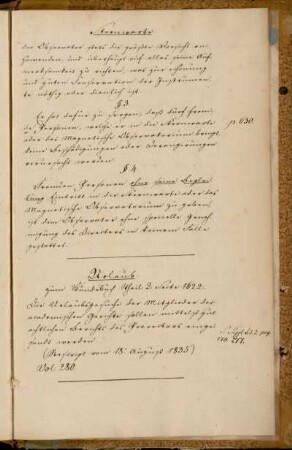 Sternwarte
der Observator stets die größte Vorsicht an-
zuwenden und überhaupt auf alles seine Auf-
merksamkeit zu richten, was zur Schonung
und guten Conservation der Instrumen-
te nöthig oder dienlich ist.
§ 3
Er hat dafür zu sorgen, daß durch frem-
de Personen, welche er in die Sternwarte
oder das Magnetische Observatorium bringt
keine Beschädigungen oder Derangirungen
verursacht werden.
p. 630.
§ 4
Fremden Personen ohne seine Beglei-
tung Eintritt in die Sternwarte oder das
Magnetische Observatorium zu geben,
ist dem Observator ohne specielle Geneh-
migung des Directors in keinem Falle
gestattet.
Urlaub
zum Handbuch Theil 2 Seite 1622.
Die Urlaubsgesuche der Mitglieder der
academischen Gerichte sollen mittelst gut-
achtlichen Berichts des Prorectors einge-
sandt werden
(Rescript vom 18. August 1835)
Vol 280